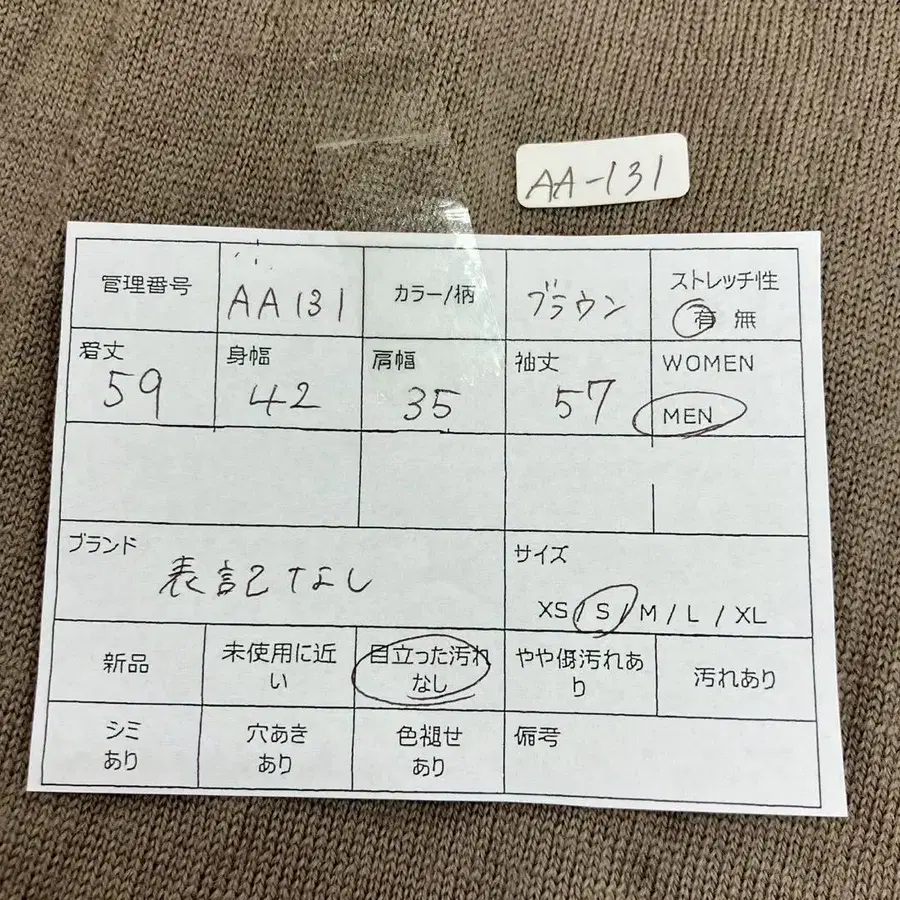 AA-131
管理番号
AA131
カラー/柄
ブラウン
ストレッチ性
有 無
着丈
59
身幅
42
肩幅
35
袖丈
57
WOMEN
MEN
ブランド
表記なし
サイズ
XS / S / M / L / XL
新品
未使用に近
い
目立った汚れ
なし
やや傷汚れあ
り
汚れあり
シミ
あり
穴あき
あり
色褪せ
あり
備考